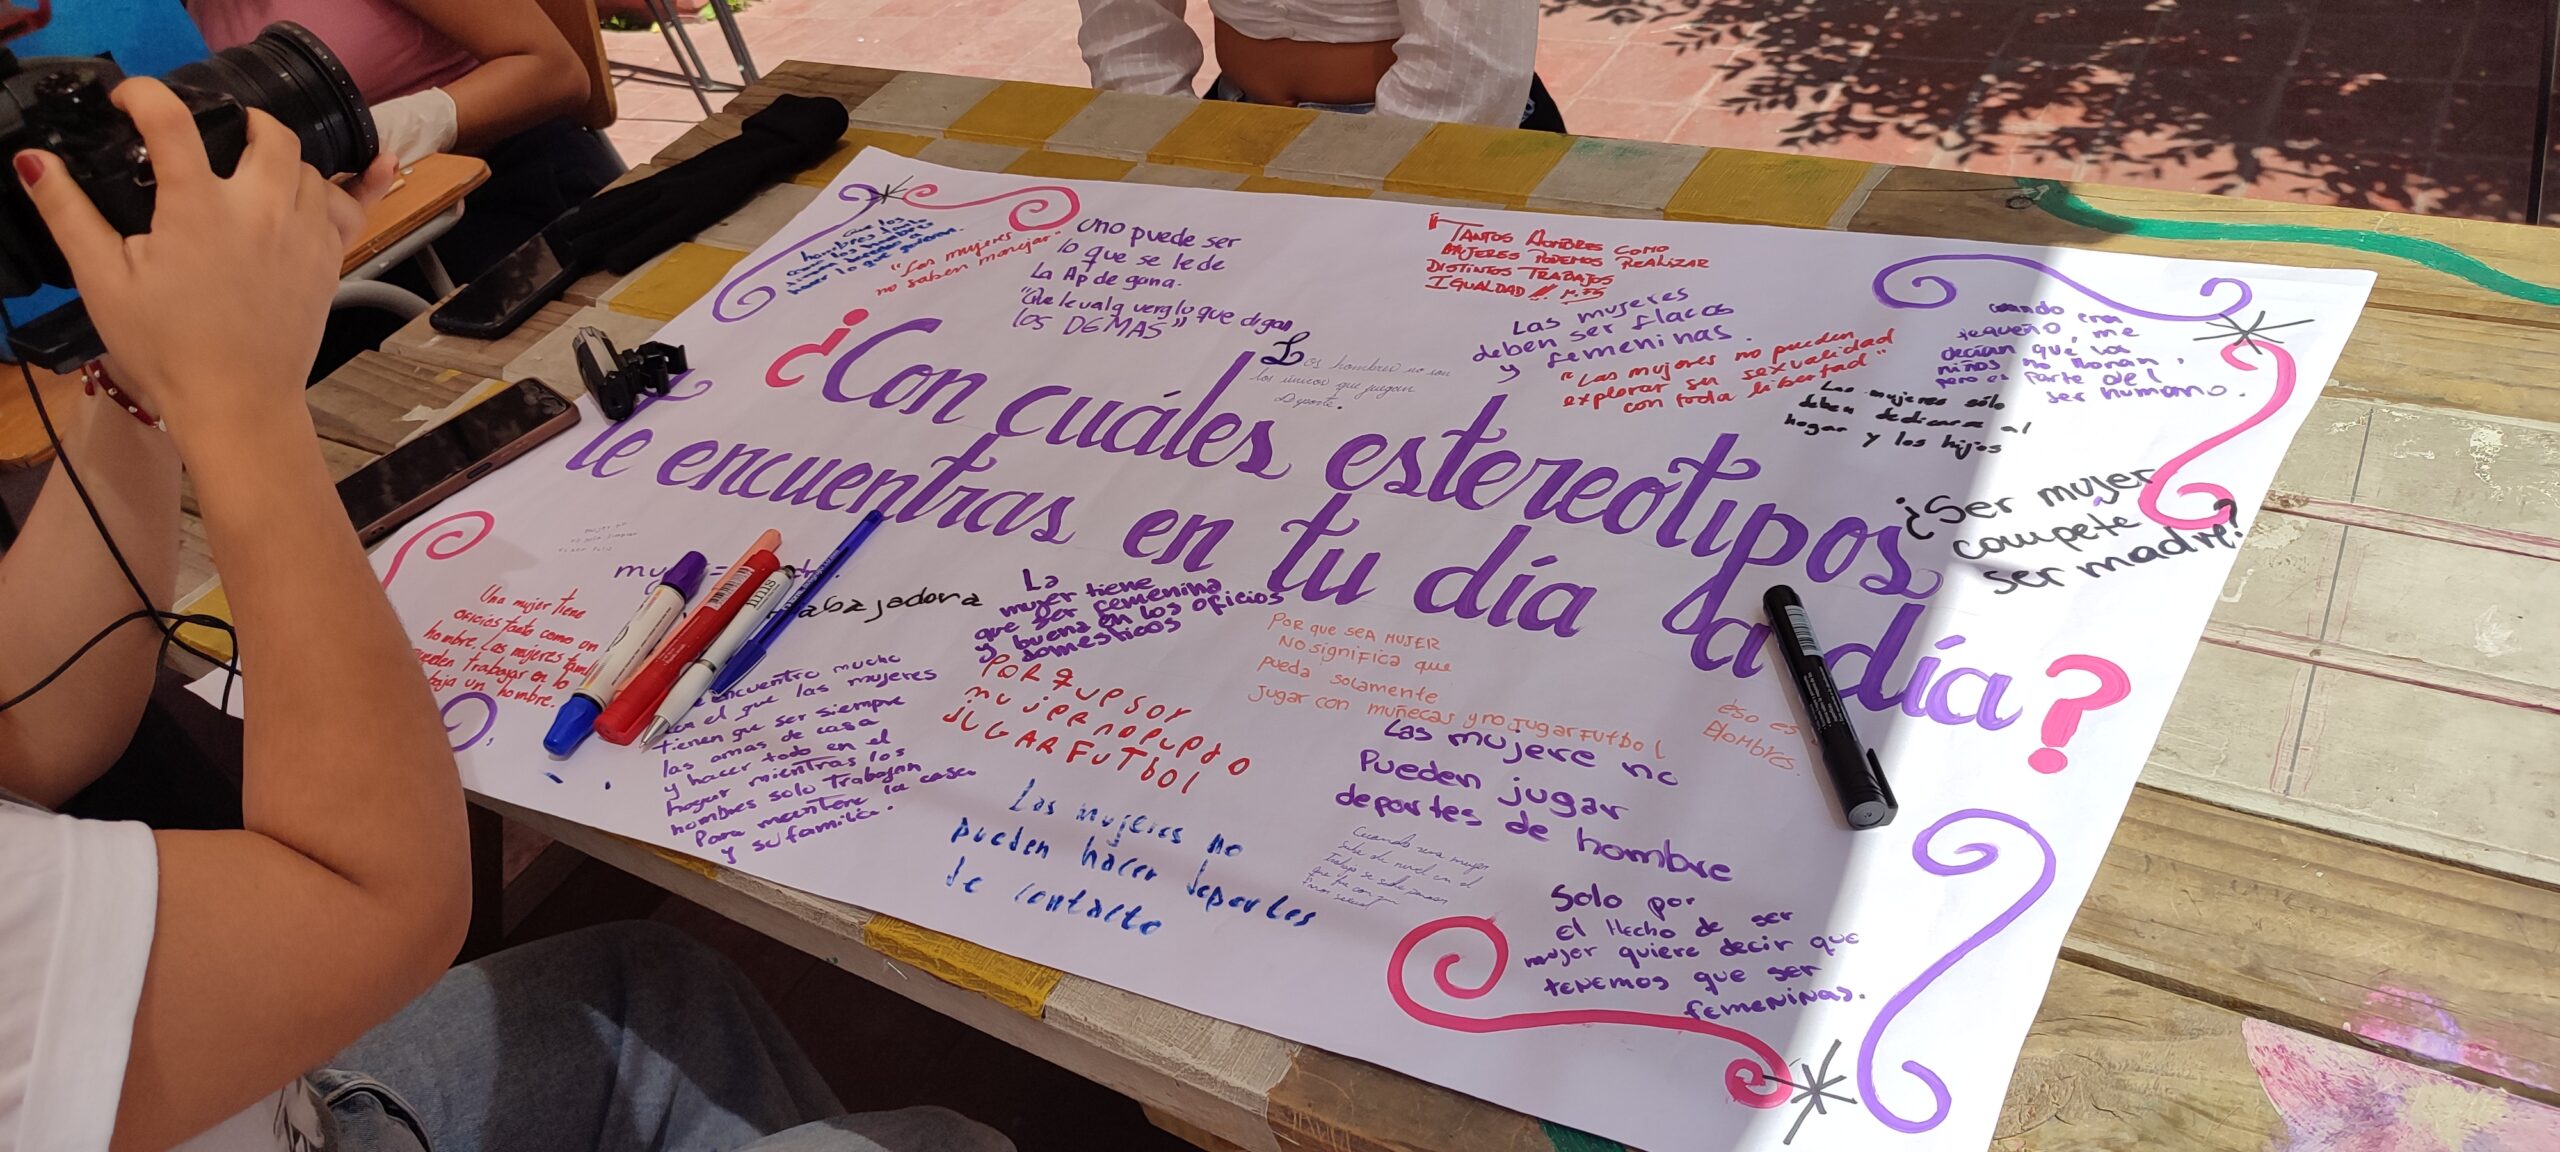 ¿Con cuáles estereotipos
te encuentras en tu día a día?
hombres
hacer lo que quieran.
"Las mujeres
no saben manejar"
uno puede ser
lo que se le de
La Ap de gana.
los DEMAS"
TANTOS HOMBRES COMO
MUJERES PODEMOS REALIZAR
DISTINTOS TRABAJOS
IGUALDAD!!!
Los hombres no son
los únicos que juegan
Deporte.
Las mujeres
deben ser flacas
y femeninas.
"Las mujeres no pueden
explorar su sexualidad
con toda libertad"
cuando era
pequeño, me
decían que los
niños no lloran,
pero es parte del
ser humano.
Las mujeres sólo
deben dedicarse al
hogar y los hijos
¿Ser mujer
compete
ser madre?
Una mujer tiene
oficios tanto como un
hombre. Las mujeres
trabajar en lo
un hombre.
encuentro mucho
en el que las mujeres
tienen que ser siempre
las amas de casa
y hacer todo en el
hogar mientras los
hombres solo trabajan
para la casa
y su familia.
La
mujer tiene
que ser femenina
y buena en los oficios
domésticos
PORQUE SOY
mujer no puedo
JUGAR FUTbol
POR que SEA MUJER
NO significa que
pueda solamente
jugar con muñecas y no JUGAR FUTbol
eso es
Hombres.
Las mujere no
Pueden jugar
deportes de hombre
Las mujeres no
pueden hacer deportes
de contacto
Cuando una mujer
sube de nivel en el
trabajo se
que fue con
Solo por
el Hecho de ser
mujer quiere decir que
tenemos que ser
femeninas.